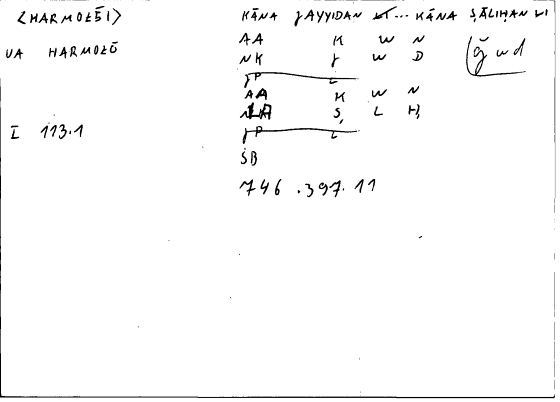 <HARMOŁĒI> KĀNA ǦAYYIDAN LI... KĀNA ṢĀLIḤAN LI
AA K W N
UA HARMOŁŌ NK ǧ W D (ǧwd
ǧP L
AA K W N
I 113.1 Ṣ L Ḥ
ǧP L
ŚB
746.397.11